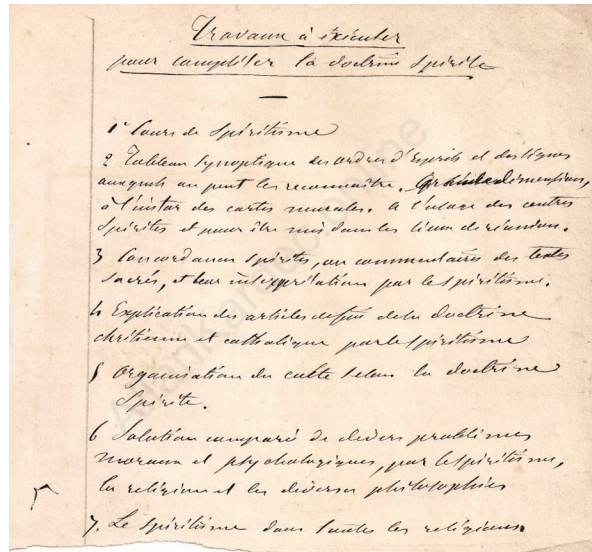 Travaux à exécuter
pour compléter la doctrine spirite
1° Cours de Spiritisme
2 Tableau synoptique des ordres d'Esprits et des signes
auxquels on peut les reconnaître. Grandes dimensions,
à l'instar des cartes murales. à l'usage des centres
Spirites et pour être mis dans les lieux de réunion.
3 Concordances Spirites, ou commentaires des textes
sacrés, et leur interprétation par le spiritisme.
4 Explication des articles de foi de la doctrine
chrétienne et catholique par le spiritisme
5 Organisation du culte selon la doctrine
Spirite.
6 Solution comparée de divers problèmes
moraux et psychologiques, par le spiritisme,
la religion et les diverses philosophies
7. Le Spiritisme dans toutes les religions.